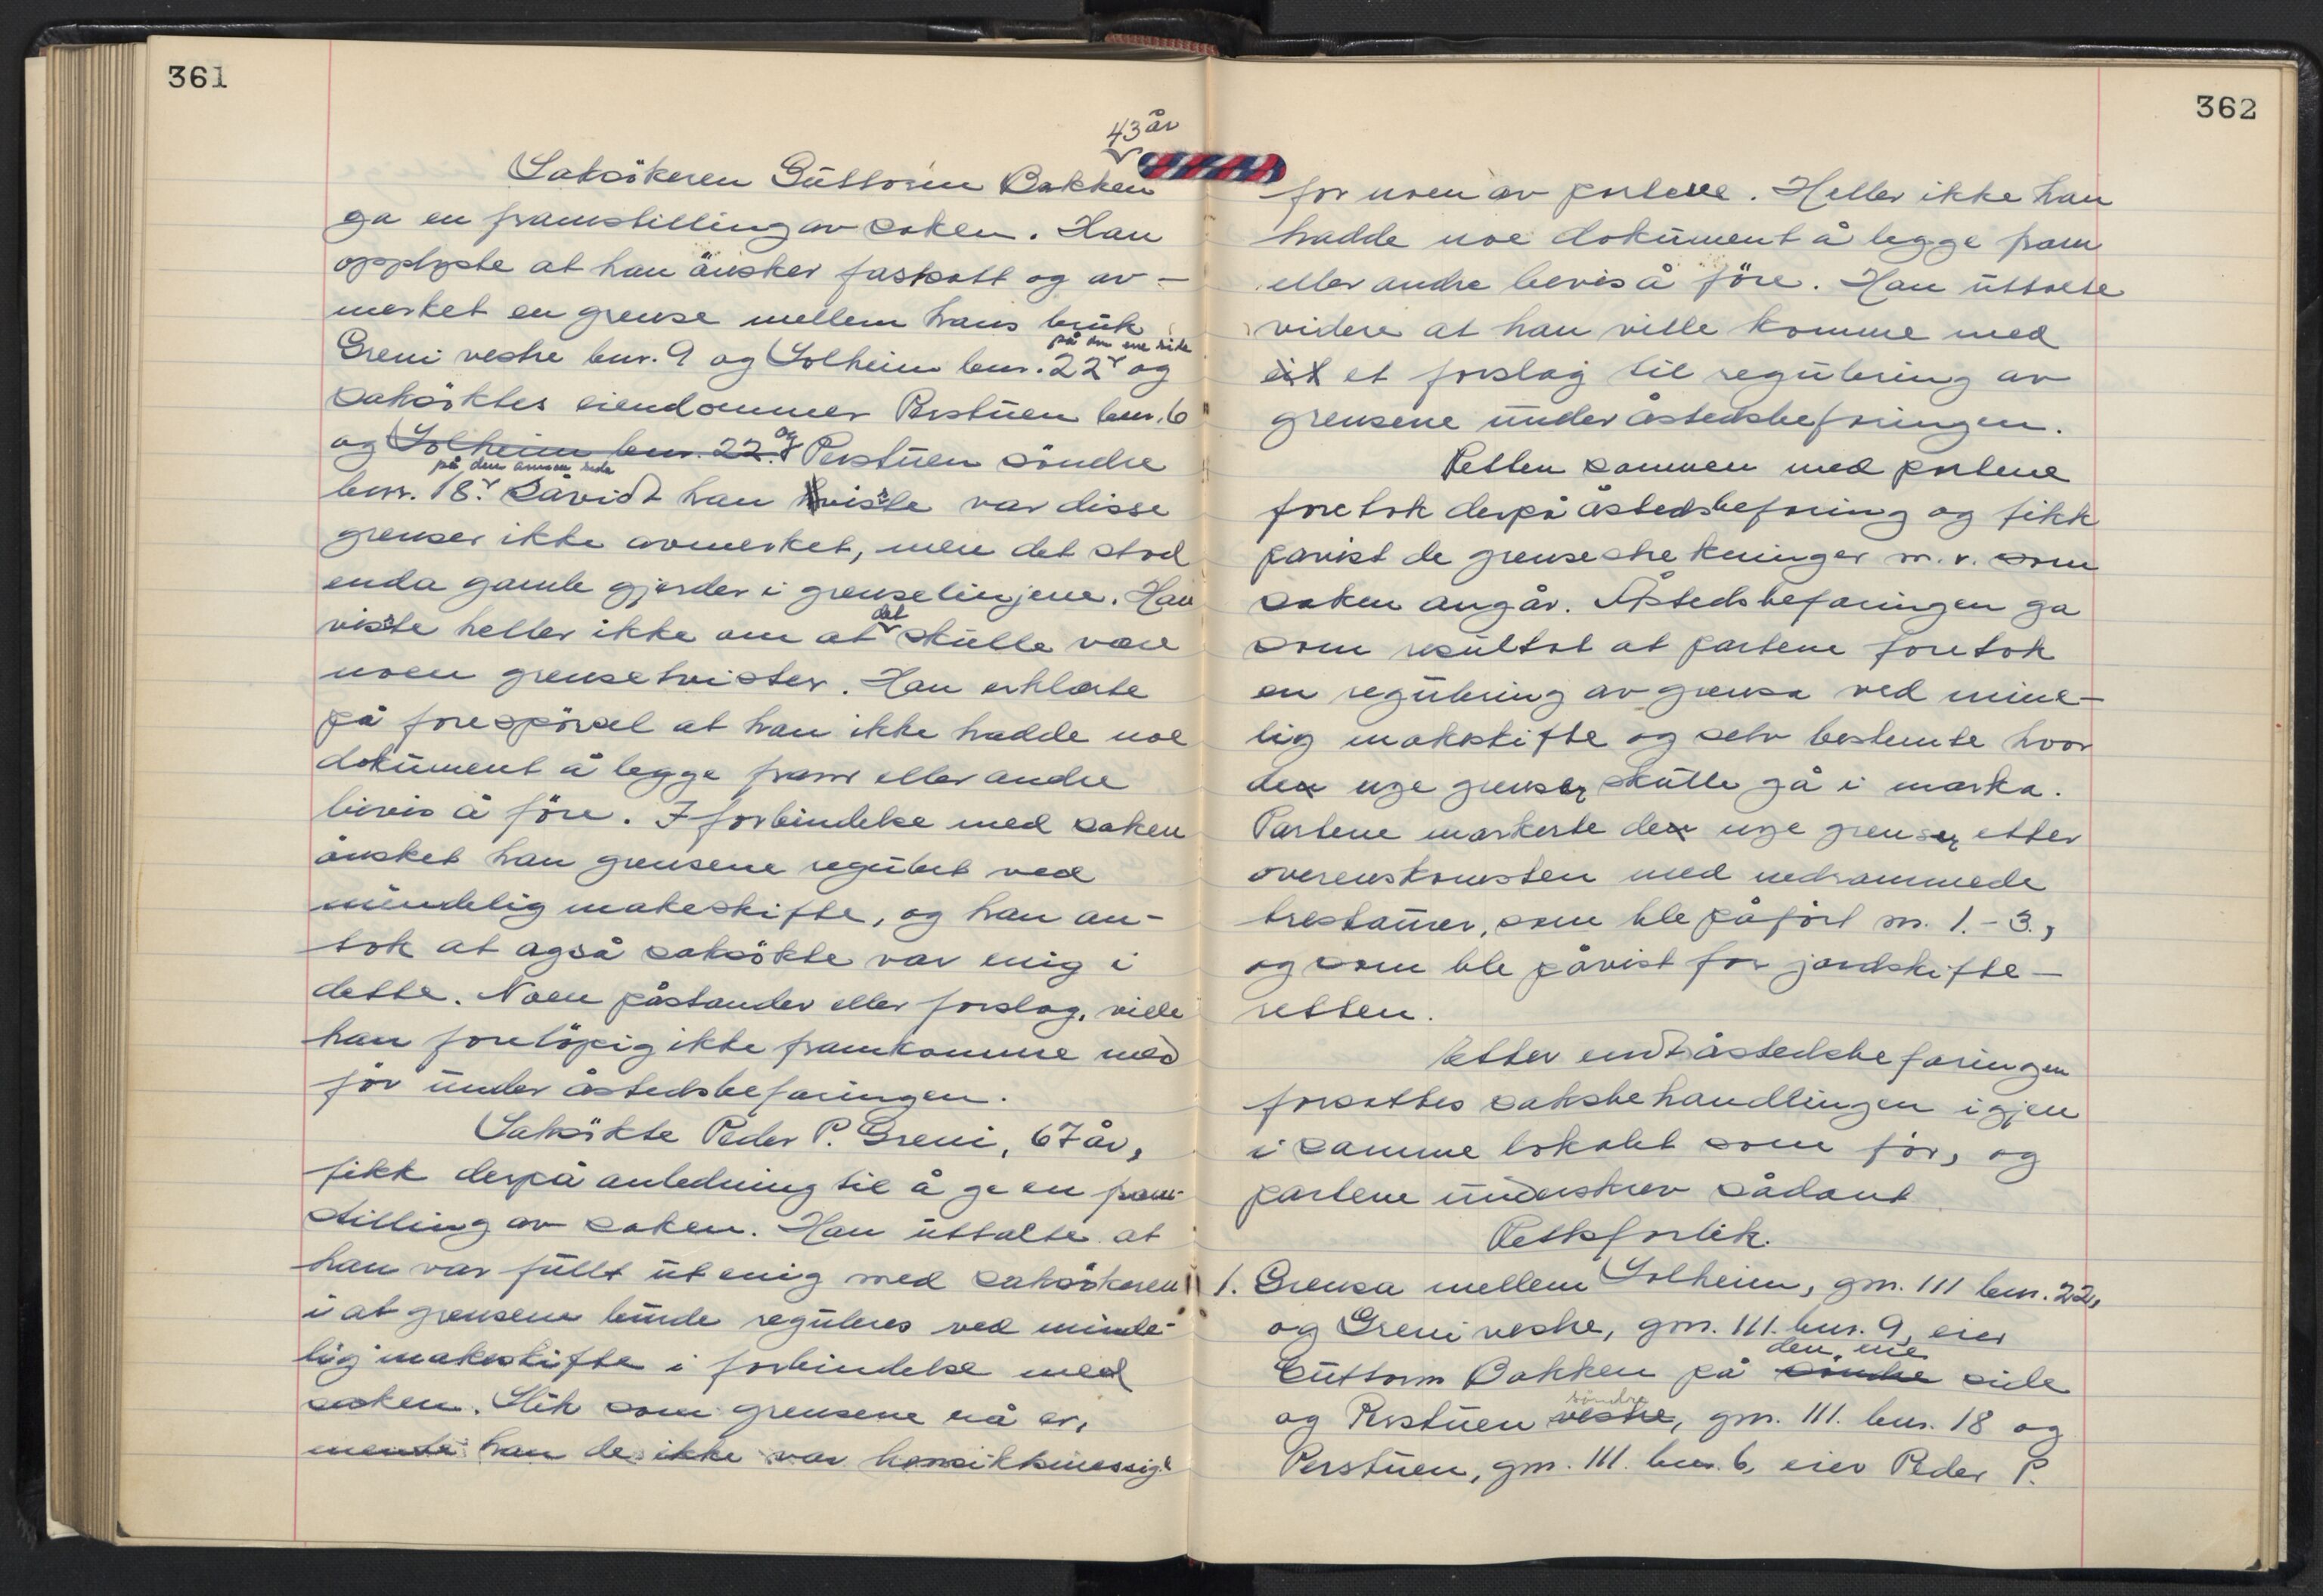 361
43 år
Saksökeren Guttorm Bakken
ga en framstilling av saken. Han
opplyste at han önsker fastsatt og av-
merket en grense mellem hans bruk
på den ene side
Greni vestre bnr. 9 og Solheim bnr. 22 og
saksöktes eiendommer Perstuen bnr. 6
og Solheim bnr. 22. og Perstuen söndre
på den annen side
bnr. 18. Såvidt han visste var disse
grenser ikke avmerket, men det stod
enda gamle gjerder i grenselinjene. Han
visste heller ikke om at det skulle være
noen grensetvister. Han erklærte
på forespörsel at han ikke hadde noe
dokument å legge fram eller andre
bevis å före. I forbindelse med saken
önsket han grensene regulert ved
minnelig makeskifte, og han an-
tok at også saksökte var enig i
dette. Noen påstander eller forslag, ville
han foreløpig ikke framkomme med
för under åstedsbefaringen.
Saksökte Peder P. Greni, 67 år,
fikk derpå anledning til å ge en fram-
stilling av saken. Han uttalte at
han var fullt ut enig med saksökeren
i at grensene burde reguleres ved minde-
lig makeskifte i forbindelse med
saken. Slik som grensene nå er,
mente han de ikke var hensiktsmessige
362
for noen av partene. Heller ikke han
hadde noe dokument å legge fram
eller andre bevis å före. Han uttalte
videre at han ville komme med
eit et forslag til regulering av
grensene under åstedsbefaringen.
Retten sammen med partene
foretok derpå åstedsbefaring og fikk
påvist de grensestrekninger m. v. som
saken angår. Åstedsbefaringen ga
som resultat at partene foretok
en regulering av grensa ved minne-
lig makeskifte og selv bestemte hvor
de nye grenser skulle gå i marka.
Partene markerte de nye grenser etter
overenskomsten med nedrammede
trestaurer, som ble påfört nr. 1.-3.,
og som ble påvist for jordskifte-
retten.
Etter endt åstedsbefaringen
forsattes saksbehandlingen igjen
i samme lokalet som för, og
partene underskrev sådant
Rettsforlik.
1. Grensa mellem Solheim, gnr. 111 bnr. 22,
og Greni vestre, gnr. 111. bnr. 9, eier
Guttorm Bakken på söndre den ene side
og Perstuen vestre söndre, gnr. 111. bnr. 18 og
Perstuen, gnr. 111. bnr. 6, eier Peder P.